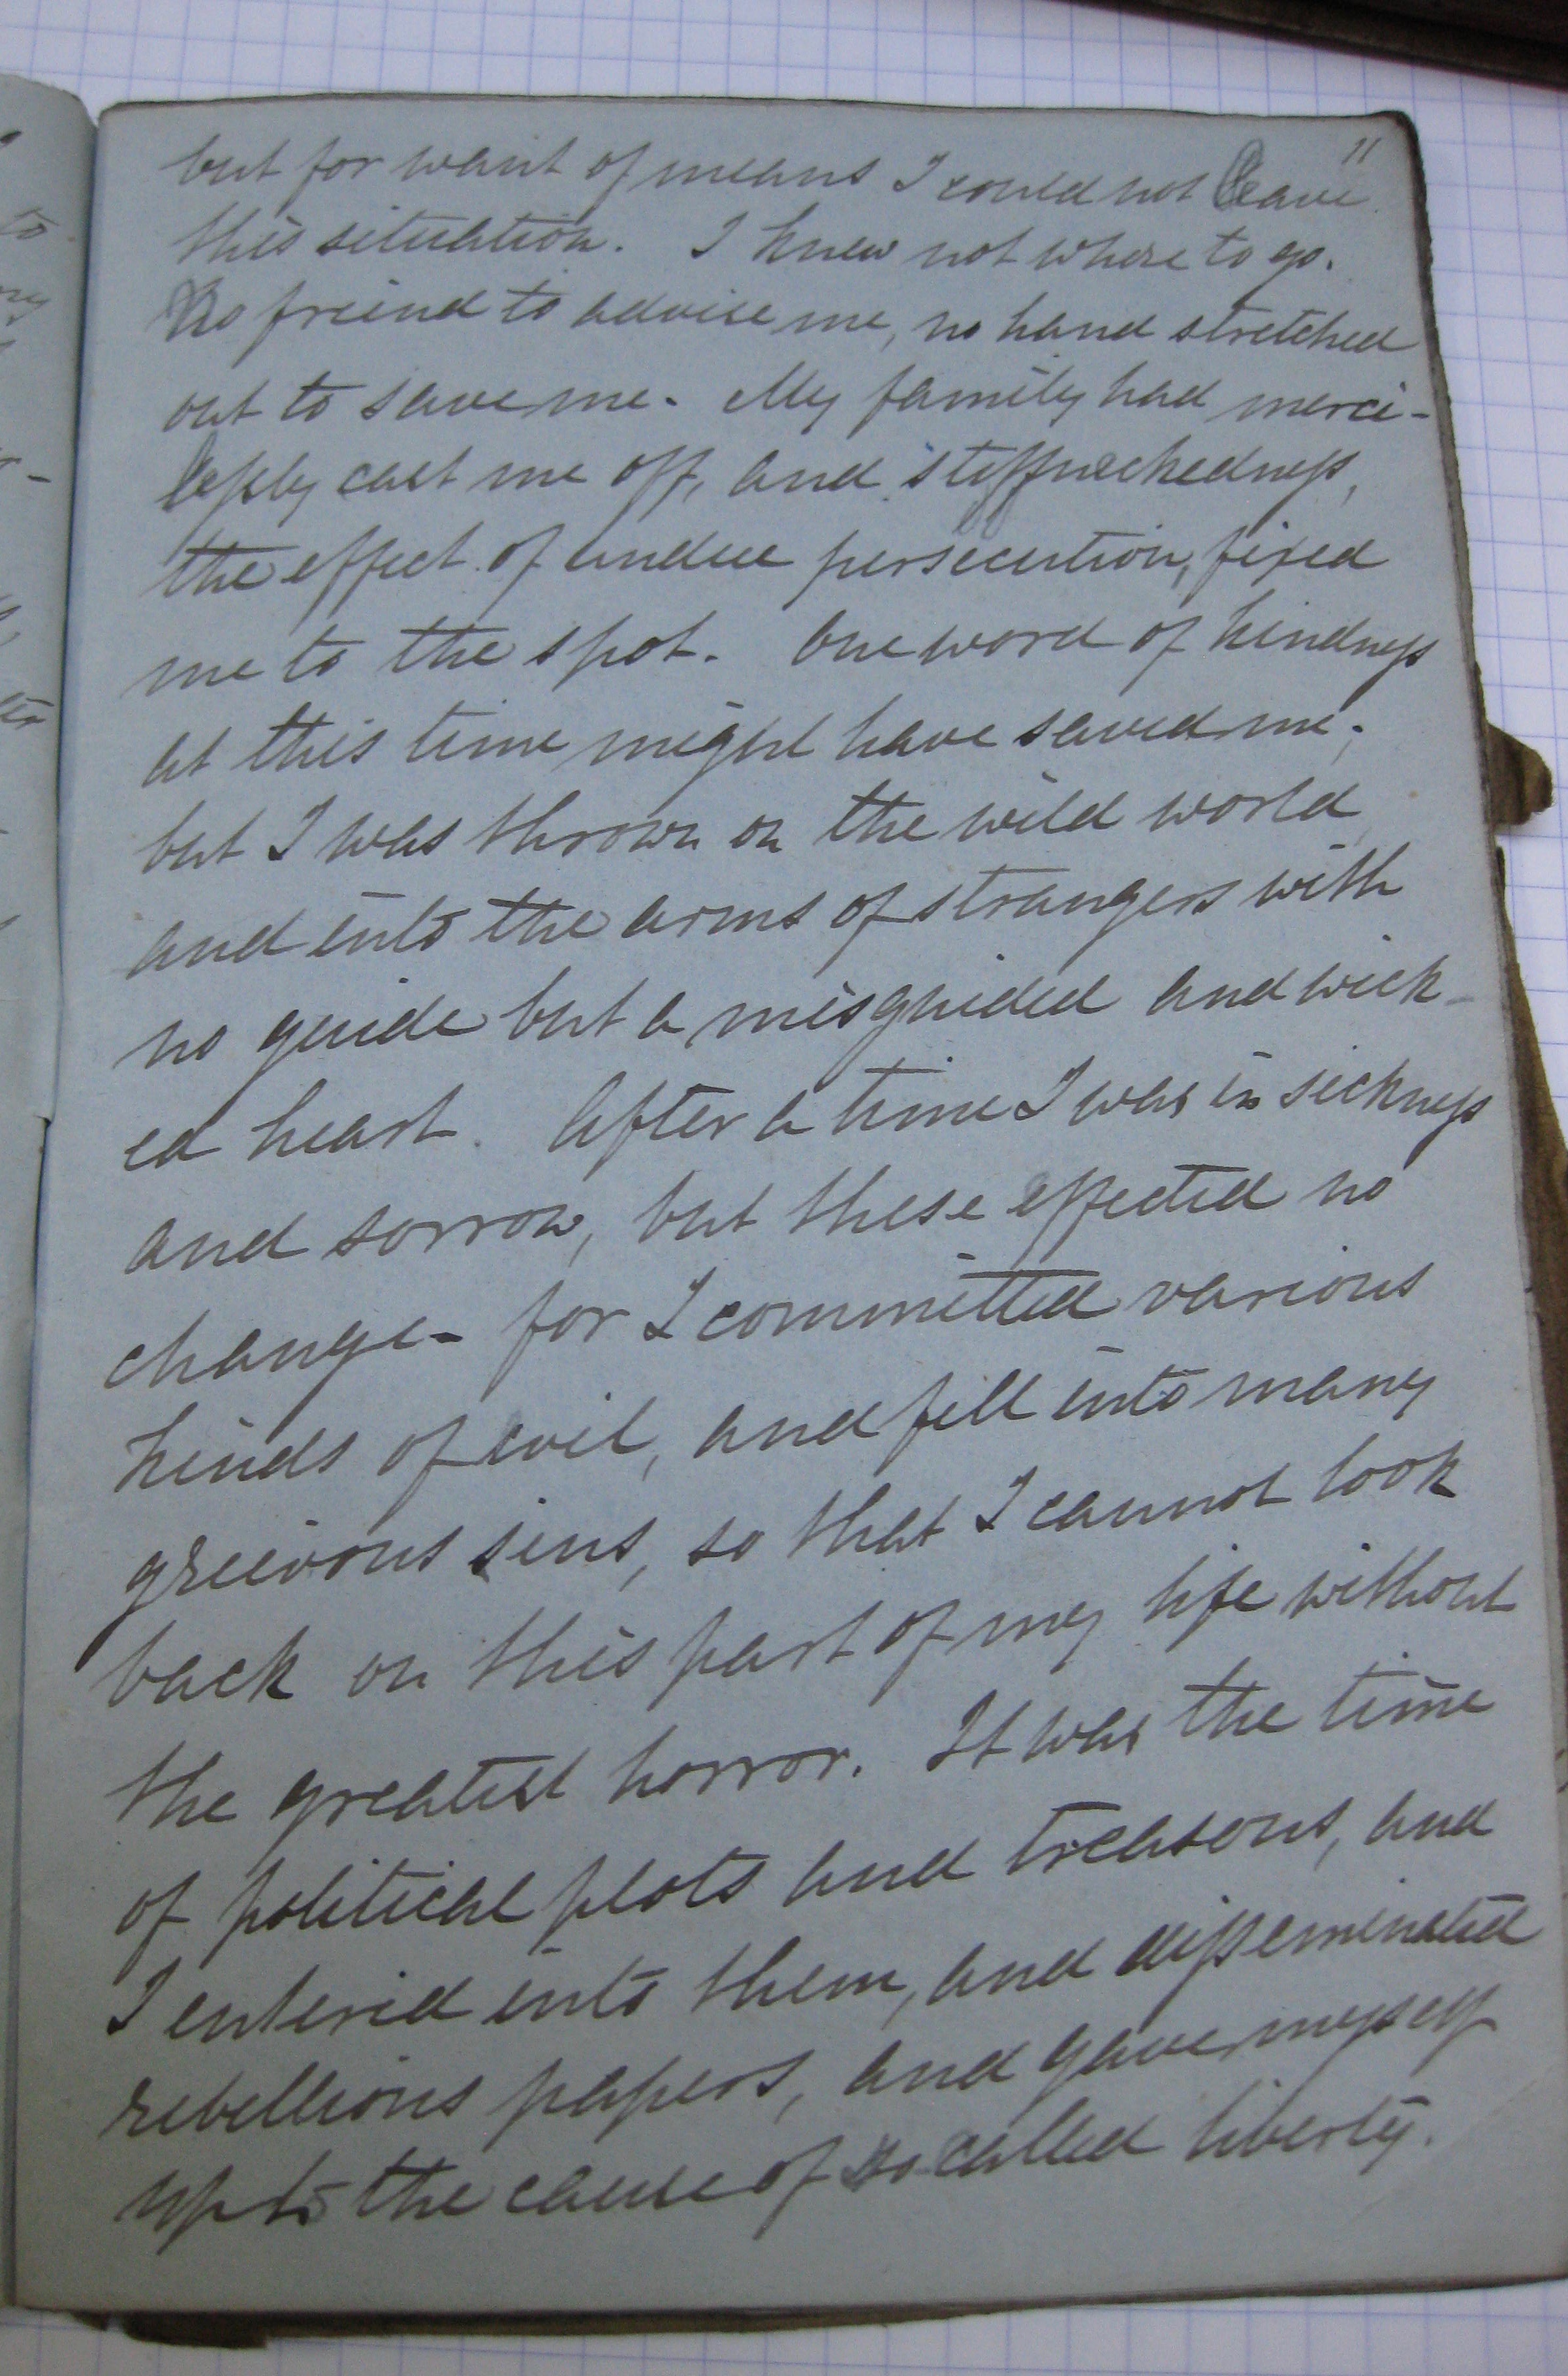 11
but for want of means I could not leave
this situation. I knew not where to go.
No freind to advise me, no hand stretched
out to save me. My family had merci-
lessly cast me off, and stiffneckedness,
the effect of undue persecution, fixed
me to the spot. One word of kindness
at this time might have saved me;
but I was thrown on the wild world
and into the arms of strangers with
no guide but a misguided and wick-
ed heart. After a time I was in sickness
and sorrow, but these effected no
change - for I committed various
kinds of evil, and fell into many
greivous sins, so that I cannot look
back on this part of my life without
the greatest horror. It was the time
of political plots and treasons, and
I entered into them, and disseminated
rebellious papers, and gave myself
up to the cause of so called liberty.